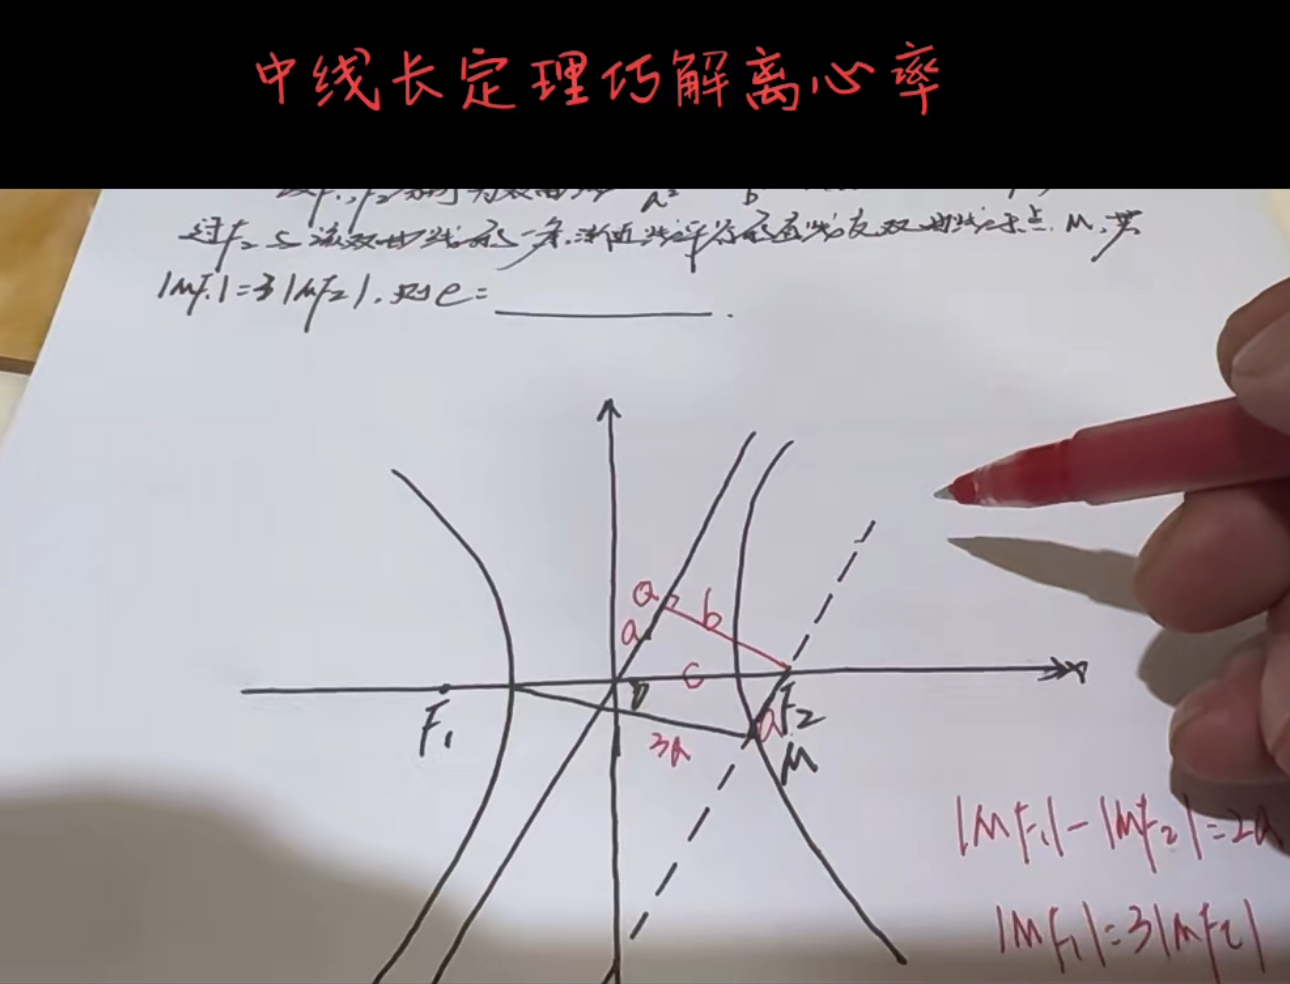 中线长定理巧解离心率
过F₂与该双曲线的一条渐近线平行的直线交双曲线于点M,若
|MF₁|=3|MF₂|,则e=________.
Q
b
a
c
F₁
F₂
a
3a
M
|MF₁|-|MF₂|=2a
|MF₁|=3|MF₂|